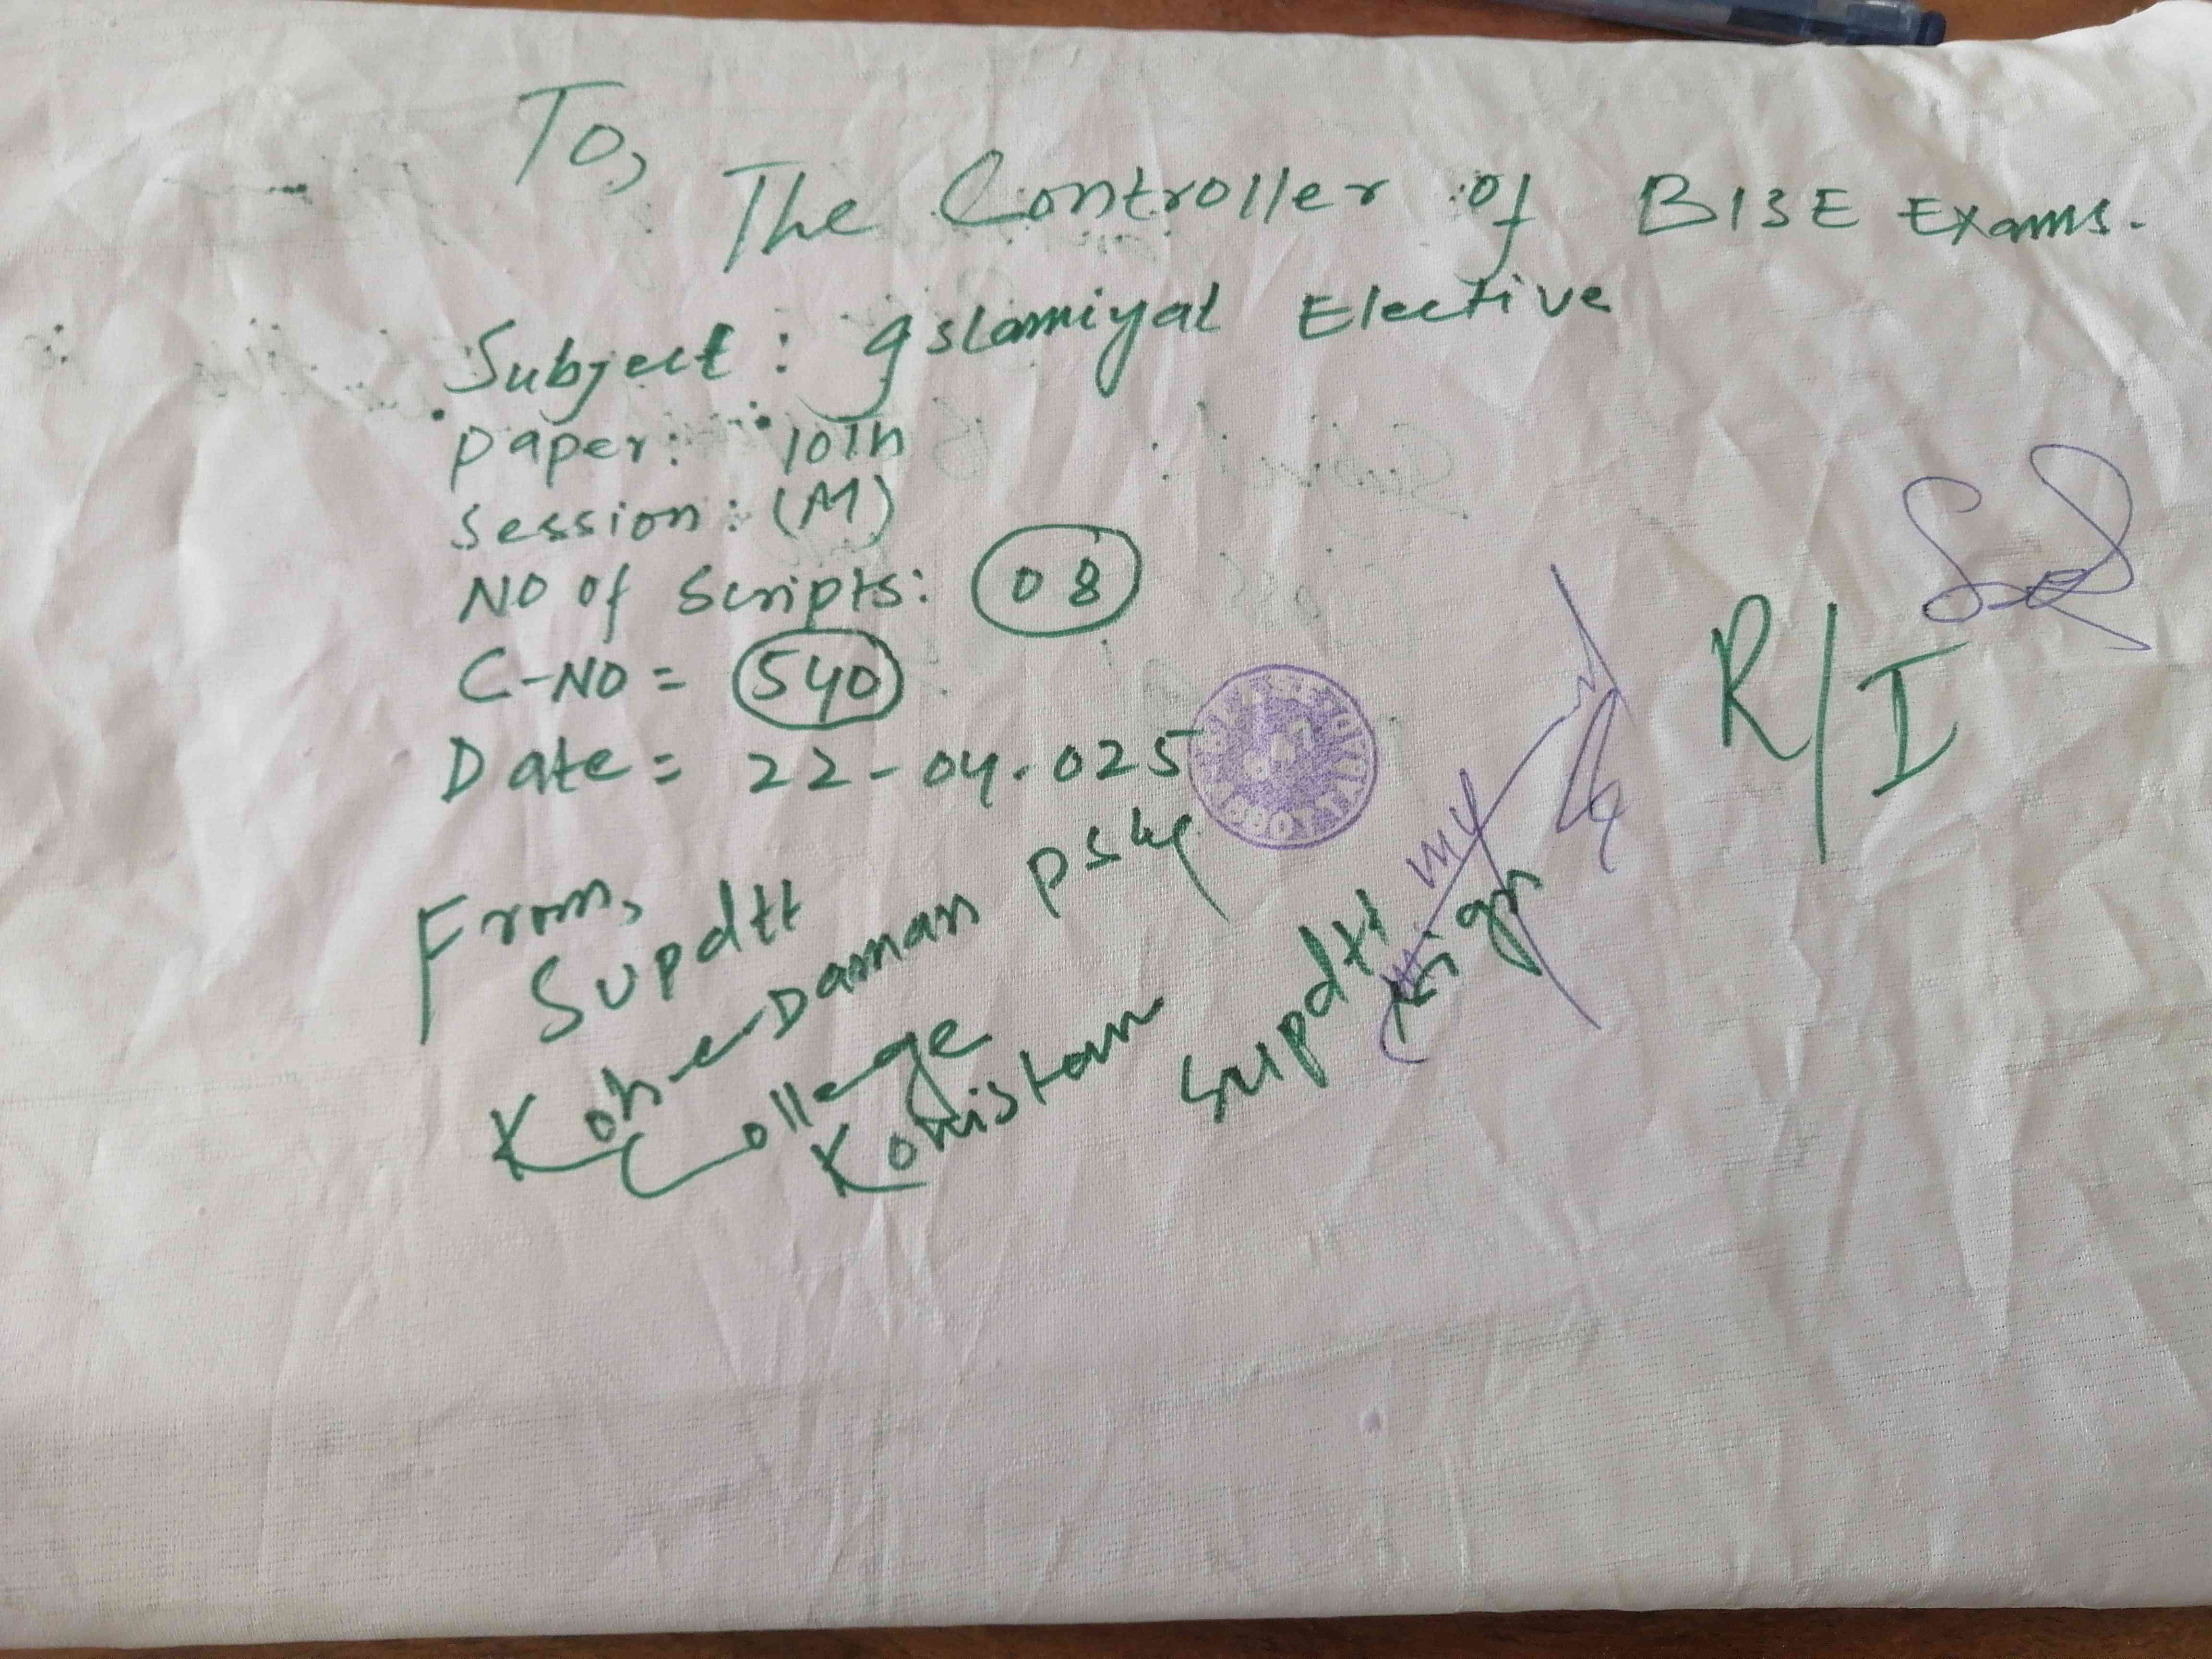 To,
The Controller of BISE Exams.
Subject: Islamiyat Elective
paper: 10Th
Session: (M)
NO of Scripts: 08
C-NO = 540
Date = 22-04.025
From,
Supdtt
Koh-e-Daman
College
Kohistan
Supdtt
R/I